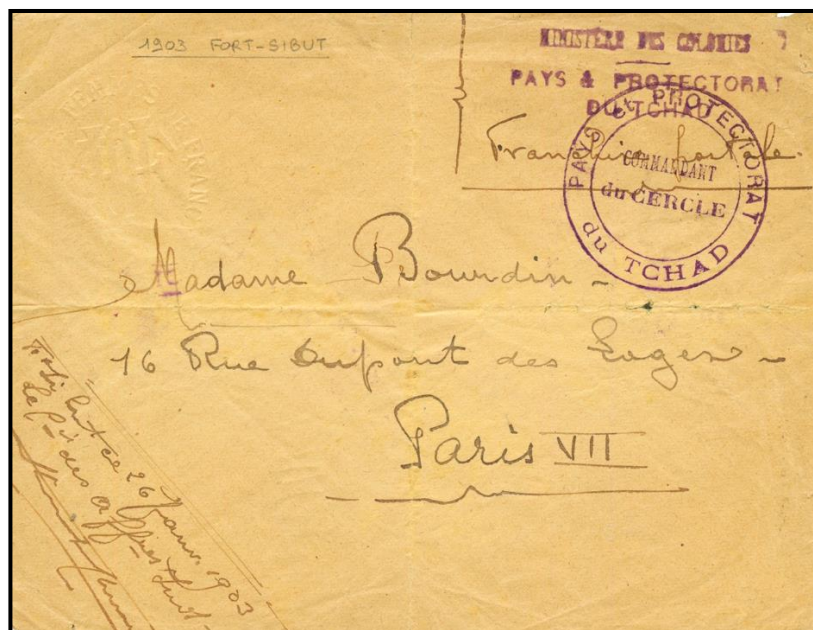 1903 FORT-SIBUT
MINISTÈRE DES COLONIES
PAYS & PROTECTORAT
DU TCHAD
Franchise postale
PAYS et PROTECTORAT
COMMANDANT
du CERCLE
du TCHAD
FRANC
Madame Bourdin -
16 Rue Dupont des Loges -
Paris VII
Fort Sibut ce 26 Janv. 1903
Le des affres